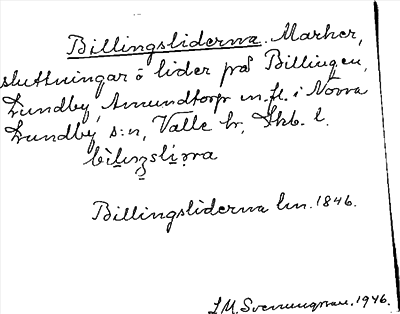 Billingsliderna. Marker,
sluttningar o lider på Billingen,
Lundby, Amundtorp m.fl. i Norra
Lundby s:n, Valle hd, Skb. l.
bìlıŋslìṛṇa
Billingsliderna lm. 1846.
S.M. Svenungsson. 1946.